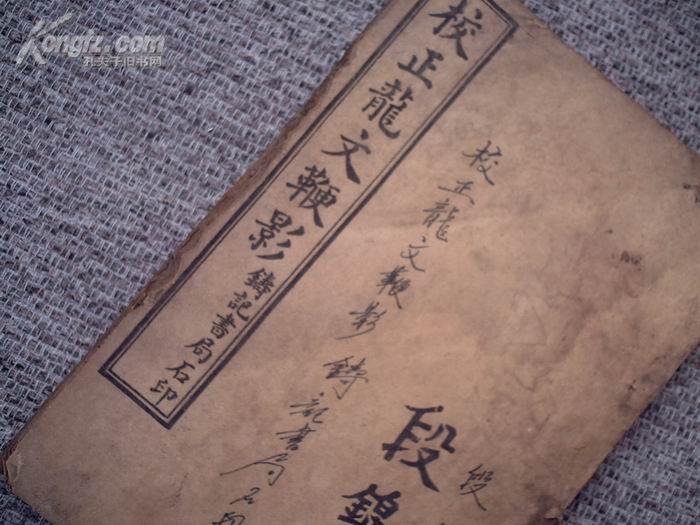 Kongfz.com
孔夫子旧书网
校正龍文鞭影 鑄記書局石印
校正龍文鞭影鑄記書局石印
段錦
段